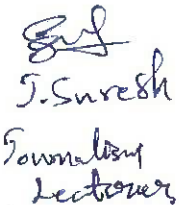 J. Suresh
Journalism
Lecturer